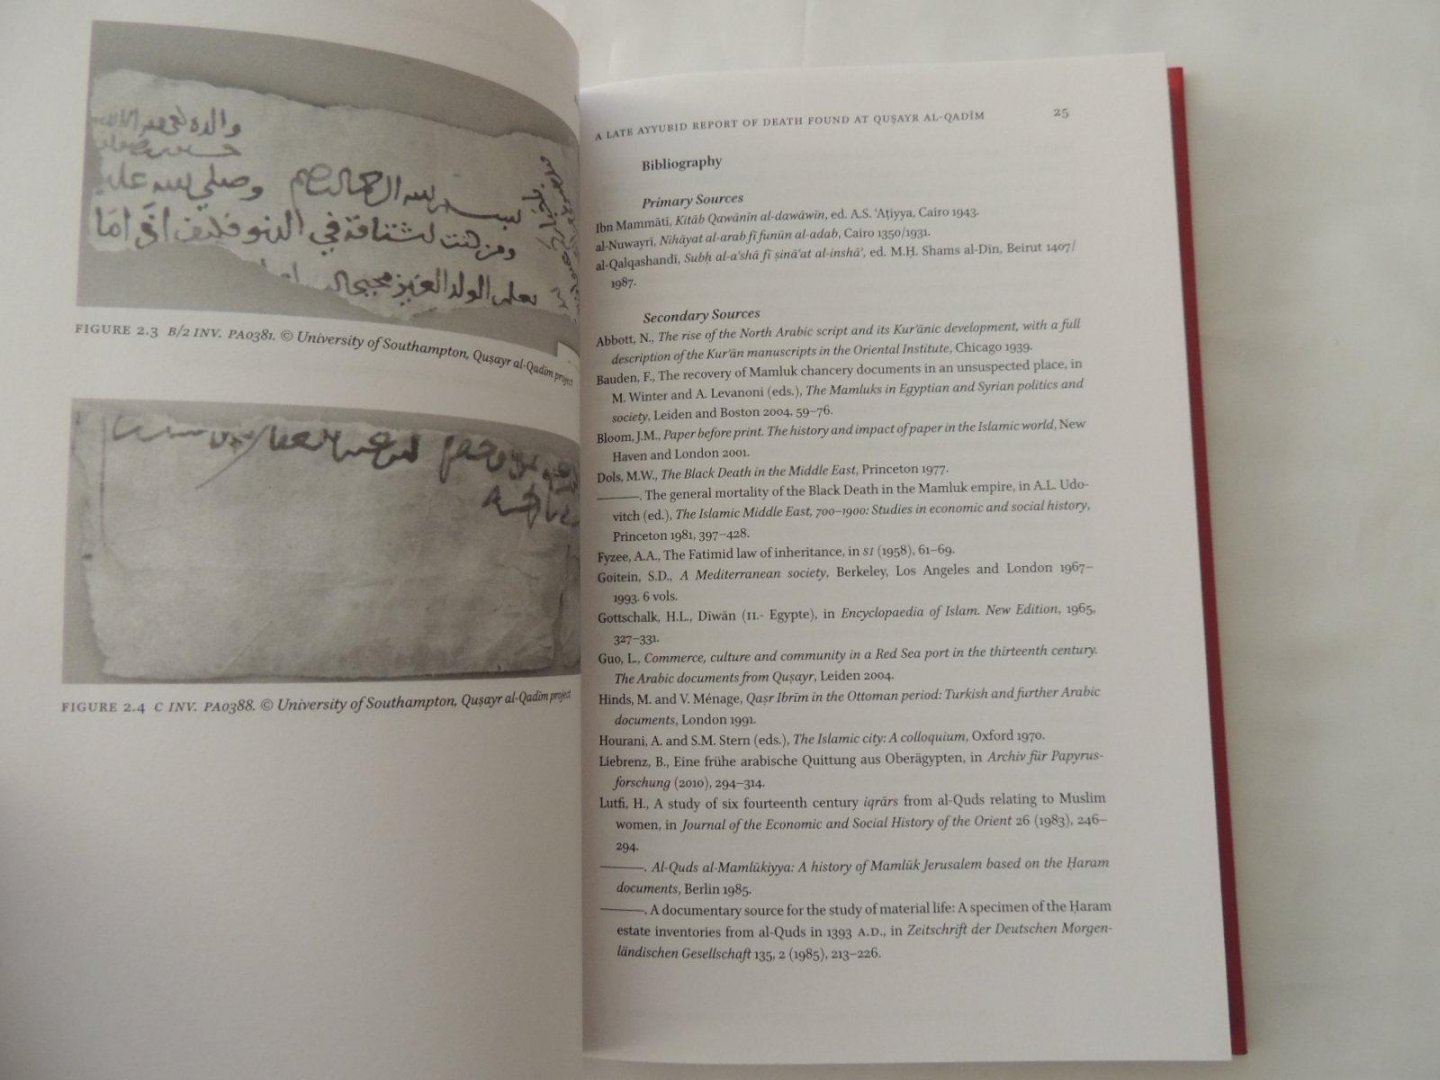 والده
بسم الله الرحمن الرحيم وصلى الله على
في
يعلم الولد العزيز
FIGURE 2.3 B/2 INV. PA0381. © University of Southampton, Quṣayr al-Qadīm project
FIGURE 2.4 C INV. PA0388. © University of Southampton, Quṣayr al-Qadīm project
A LATE AYYUBID REPORT OF DEATH FOUND AT QUṢAYR AL-QADĪM 25
Bibliography
Primary Sources
Ibn Mammātī, Kitāb Qawānīn al-dawāwīn, ed. A.S. ʿAṭiyya, Cairo 1943.
al-Nuwayrī, Nihāyat al-arab fī funūn al-adab, Cairo 1350/1931.
al-Qalqashandī, Subḥ al-aʿshā fī ṣināʿat al-inshāʾ, ed. M.Ḥ. Shams al-Dīn, Beirut 1407/
1987.
Secondary Sources
Abbott, N., The rise of the North Arabic script and its Kurʾānic development, with a full
description of the Kurʾān manuscripts in the Oriental Institute, Chicago 1939.
Bauden, F., The recovery of Mamluk chancery documents in an unsuspected place, in
M. Winter and A. Levanoni (eds.), The Mamluks in Egyptian and Syrian politics and
society, Leiden and Boston 2004, 59–76.
Bloom, J.M., Paper before print. The history and impact of paper in the Islamic world, New
Haven and London 2001.
Dols, M.W., The Black Death in the Middle East, Princeton 1977.
———. The general mortality of the Black Death in the Mamluk empire, in A.L. Udo-
vitch (ed.), The Islamic Middle East, 700–1900: Studies in economic and social history,
Princeton 1981, 397–428.
Fyzee, A.A., The Fatimid law of inheritance, in SI (1958), 61–69.
Goitein, S.D., A Mediterranean society, Berkeley, Los Angeles and London 1967–
1993. 6 vols.
Gottschalk, H.L., Dīwān (II.- Egypte), in Encyclopaedia of Islam. New Edition, 1965,
327–331.
Guo, L., Commerce, culture and community in a Red Sea port in the thirteenth century.
The Arabic documents from Quṣayr, Leiden 2004.
Hinds, M. and V. Ménage, Qaṣr Ibrīm in the Ottoman period: Turkish and further Arabic
documents, London 1991.
Hourani, A. and S.M. Stern (eds.), The Islamic city: A colloquium, Oxford 1970.
Liebrenz, B., Eine frühe arabische Quittung aus Oberägypten, in Archiv für Papyrus-
forschung (2010), 294–314.
Lutfi, H., A study of six fourteenth century iqrārs from al-Quds relating to Muslim
women, in Journal of the Economic and Social History of the Orient 26 (1983), 246–
294.
———. Al-Quds al-Mamlūkiyya: A history of Mamlūk Jerusalem based on the Ḥaram
documents, Berlin 1985.
———. A documentary source for the study of material life: A specimen of the Ḥaram
estate inventories from al-Quds in 1393 A.D., in Zeitschrift der Deutschen Morgen-
ländischen Gesellschaft 135, 2 (1985), 213–226.